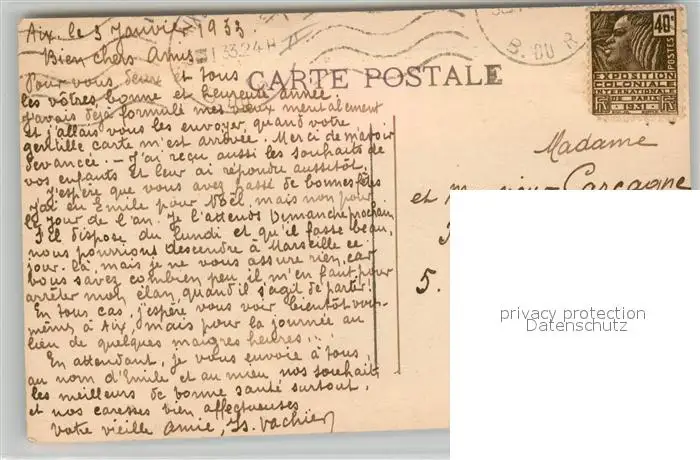 Aix le 3 Janvier 1933
Bien chers Amis
33.24 H
B. DU R
40c
POSTES
EXPOSITION
COLONIALE
INTERNATIONALE
DE PARIS
1931
CARTE POSTALE
Pour vous deux et tous
les vôtres, bonne et heureuse année.
J'avais déjà formulé mes vœux mentalement
et j'allais vous les envoyer, quand votre
gentille carte m'est arrivée. Merci de m'avoir
devancée. - J'ai reçu aussi les souhaits de
vos enfants et leur ai répondu aussitôt.
J'espère que vous avez passé de bonnes fêtes
J'ai eu Emile pour Noël, mais non pour
le jour de l'an. Je l'attends Dimanche prochain
S'il dispose du lundi et qu'il fasse beau,
nous pourrions descendre à Marseille ce
jour-là, mais je ne vous assure rien, car
vous savez combien peu il m'en faut pour
arrêter mon élan, quand il s'agit de partir!
En tous cas, j'espère vous voir bientôt vous-
mêmes à Aix, mais pour la journée au
lieu de quelques maigres heures...
En attendant, je vous envoie à tous,
au nom d'Emile et au mien nos souhaits
les meilleurs de bonne santé surtout,
et nos caresses bien affectueuses
Votre vieille amie,
Madame
et Carcagne
5.
privacy protection
Datenschutz